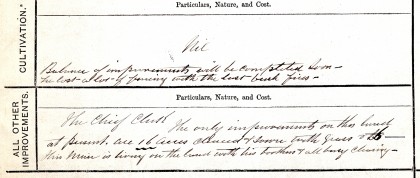 Particulars, Nature, and Cost.
CULTIVATION.*
Nil
Balance of improvements will be completed soon -
he lost a lot of fencing with the last bush fires -
Particulars, Nature, and Cost.
ALL OTHER IMPROVEMENTS.
The Chief Clerk
The only improvements on this land
at present are 16 acres cleared & sown with Grass
this man is living on the land with his brothers & all busy clearing -